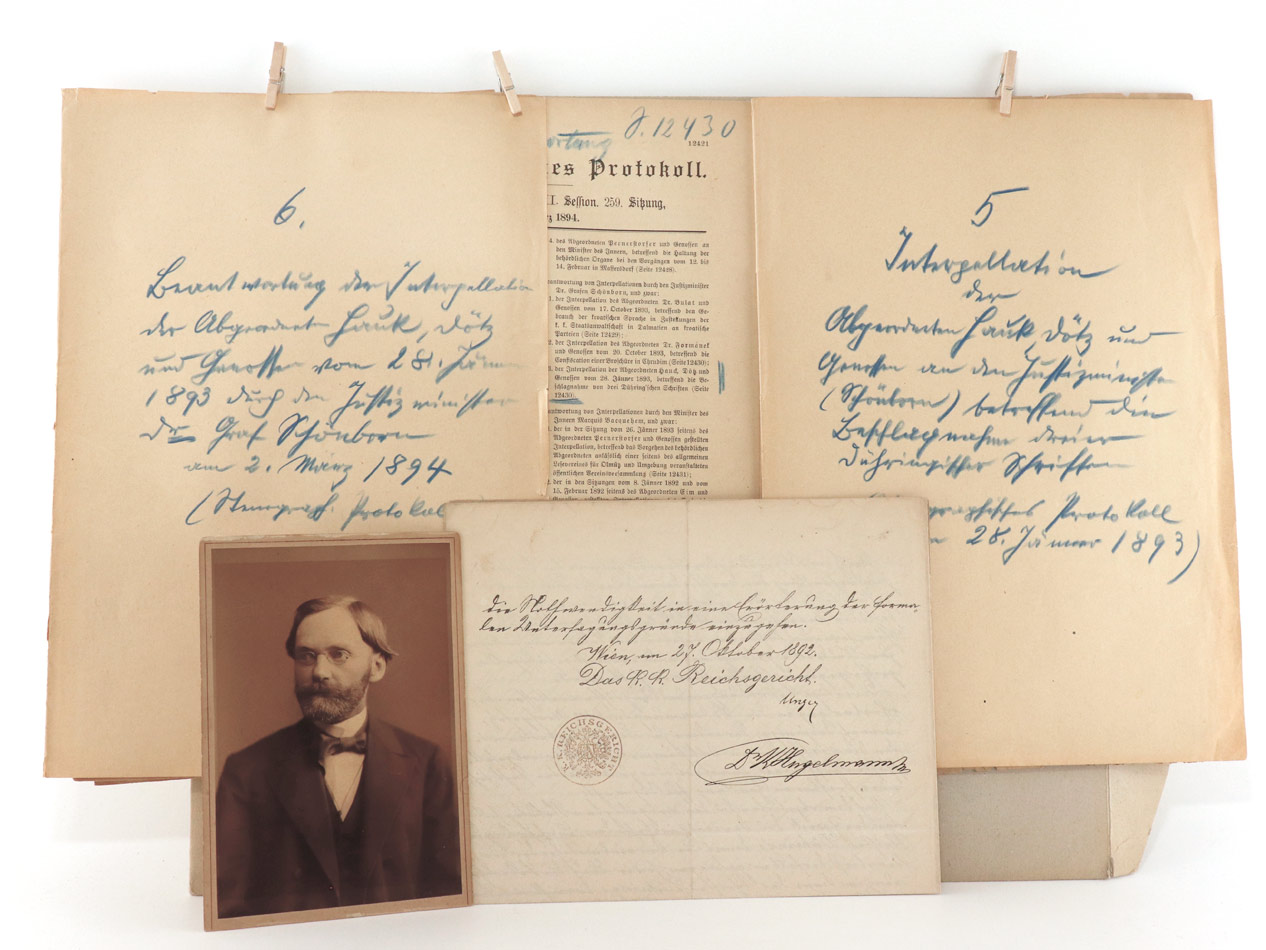 6.
Beantwortung der Interpellation
der Abgeordneten Hauk, Dötz
und Genossen vom 28. Jänner
1893 durch den Justizminister
Dr Graf Schönborn
am 2. März 1894
(Stenograf. Protokol
ortung S. 12430
12421
es Protokoll.
I. Session. 259. Sitzung,
z 1894.
4. des Abgeordneten Pernerstorfer und Genossen an
den Minister des Innern, betreffend die Haltung der
behördlichen Organe bei den Vorgängen vom 12. bis
14. Februar in (Seite 12428).
antwortung von Interpellationen durch den Justizminister
Dr. Grafen Schönborn, und zwar:
1. der Interpellation des Abgeordneten Dr. Bulat und
Genossen vom 17. October 1893, betreffend den Ge-
brauch der kroatischen Sprache in Zustellungen der
k. k. Staatsanwaltschaft in Dalmatien an kroatische
Parteien (Seite 12429);
2. der Interpellation des Abgeordneten Dr. Formánek
und Genossen vom 20. October 1893, betreffend die
Confiscation einer Broschüre in Chrudim (Seite 12430);
3. der Interpellation der Abgeordneten Hauck, Dötz und
Genossen vom 28. Jänner 1893, betreffend die Be-
schlagnahme von drei Dühring'schen Schriften (Seite
12430).
antwortung von Interpellationen durch den Minister des
Innern Marquis Bacquehem, und zwar:
1. der in der Sitzung vom 26. Jänner 1893 seitens des
Abgeordneten Pernerstorfer und Genossen gestellten
Interpellation, betreffend das Vorgehen des behördlichen
Abgeordneten anläßlich einer seitens des allgemeinen
Lesevereines für Olmütz und Umgebung veranstalteten
öffentlichen Vereinsversammlung (Seite 12431);
2. der in den Sitzungen vom 8. Jänner 1892 und vom
15. Februar 1892 seitens des Abgeordneten und
5
Interpellation
der
Abgeordneten Hauk Dötz und
Genossen an den Justizminister
(Schönborn) betreffend die
Beschlagnahme dreier
Dühringischer Schriften
graphisches Protokoll
28. Jänner 1893)
die Nothwendigkeit in eine Erörterung der forma-
len Untersagungsgründe einzugehen.
Wien, am 27. Oktober 1892.
Das k. k. Reichsgericht.
Unger
K. REICHSGERICHT
Dr KHugelmann